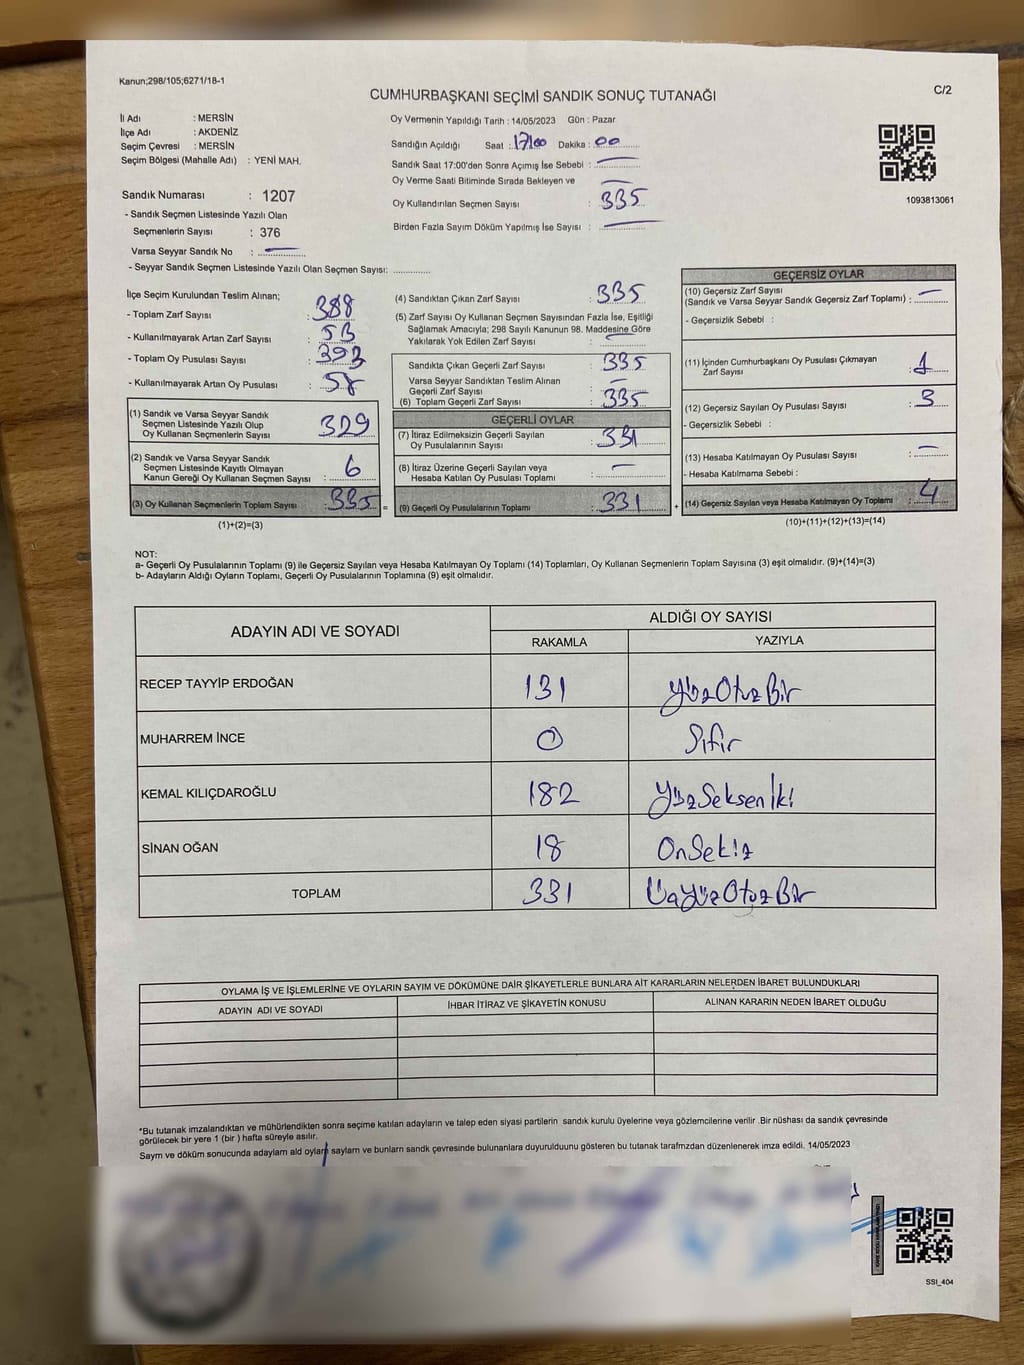 Kanun;298/105;6271/18-1
C/2
CUMHURBAŞKANI SEÇİMİ SANDIK SONUÇ TUTANAĞI
İl Adı : MERSİN
İlçe Adı : AKDENİZ
Seçim Çevresi : MERSİN
Seçim Bölgesi (Mahalle Adı) : YENİ MAH.
Oy Vermenin Yapıldığı Tarih : 14/05/2023 Gün : Pazar
Sandığın Açıldığı Saat : 17:00 Dakika : 00
Sandık Saat 17:00'den Sonra Açımış İse Sebebi :
Oy Verme Saati Bitiminde Sırada Bekleyen ve
Oy Kullandırılan Seçmen Sayısı : 335
Birden Fazla Sayım Döküm Yapılmış İse Sayısı :
1093813061
Sandık Numarası : 1207
- Sandık Seçmen Listesinde Yazılı Olan
Seçmenlerin Sayısı : 376
Varsa Seyyar Sandık No :
- Seyyar Sandık Seçmen Listesinde Yazılı Olan Seçmen Sayısı:
İlçe Seçim Kurulundan Teslim Alınan;
- Toplam Zarf Sayısı : 388
- Kullanılmayarak Artan Zarf Sayısı : 53
- Toplam Oy Pusulası Sayısı : 393
- Kullanılmayarak Artan Oy Pusulası : 58
(1) Sandık ve Varsa Seyyar Sandık
Seçmen Listesinde Yazılı Olup
Oy Kullanan Seçmenlerin Sayısı 329
(2) Sandık ve Varsa Seyyar Sandık
Seçmen Listesinde Kayıtlı Olmayan
Kanun Gereği Oy Kullanan Seçmen Sayısı : 6
(3) Oy Kullanan Seçmenlerin Toplam Sayısı : 335
(1)+(2)=(3)
(4) Sandıktan Çıkan Zarf Sayısı : 335
(5) Zarf Sayısı Oy Kullanan Seçmen Sayısından Fazla İse, Eşitliği
Sağlamak Amacıyla; 298 Sayılı Kanunun 98. Maddesine Göre
Yakılarak Yok Edilen Zarf Sayısı :
Sandıkta Çıkan Geçerli Zarf Sayısı : 335
Varsa Seyyar Sandıktan Teslim Alınan
Geçerli Zarf Sayısı :
(6) Toplam Geçerli Zarf Sayısı : 335
GEÇERLİ OYLAR
(7) İtiraz Edilmeksizin Geçerli Sayılan
Oy Pusulalarının Sayısı : 331
(8) İtiraz Üzerine Geçerli Sayılan veya
Hesaba Katılan Oy Pusulası Toplamı :
= (9) Geçerli Oy Pusulalarının Toplamı : 331
GEÇERSİZ OYLAR
(10) Geçersiz Zarf Sayısı
(Sandık ve Varsa Seyyar Sandık Geçersiz Zarf Toplamı) :
- Geçersizlik Sebebi :
(11) İçinden Cumhurbaşkanı Oy Pusulası Çıkmayan
Zarf Sayısı : 1
(12) Geçersiz Sayılan Oy Pusulası Sayısı : 3
- Geçersizlik Sebebi :
(13) Hesaba Katılmayan Oy Pusulası Sayısı :
- Hesaba Katılmama Sebebi :
+ (14) Geçersiz Sayılan veya Hesaba Katılmayan Oy Toplamı : 4
(10)+(11)+(12)+(13)=(14)
NOT:
a- Geçerli Oy Pusulalarının Toplamı (9) ile Geçersiz Sayılan veya Hesaba Katılmayan Oy Toplamı (14) Toplamları, Oy Kullanan Seçmenlerin Toplam Sayısına (3) eşit olmalıdır. (9)+(14)=(3)
b- Adayların Aldığı Oyların Toplamı, Geçerli Oy Pusulalarının Toplamına (9) eşit olmalıdır.
ADAYIN ADI VE SOYADI ALDIĞI OY SAYISI
RAKAMLA YAZIYLA
RECEP TAYYİP ERDOĞAN 131 YüzOtuzBir
MUHARREM İNCE 0 Sıfır
KEMAL KILIÇDAROĞLU 182 YüzSeksenİki
SİNAN OĞAN 18 OnSekiz
TOPLAM 331 ÜçYüzOtuzBir
OYLAMA İŞ VE İŞLEMLERİNE VE OYLARIN SAYIM VE DÖKÜMÜNE DAİR ŞİKAYETLERLE BUNLARA AİT KARARLARIN NELERDEN İBARET BULUNDUKLARI
ADAYIN ADI VE SOYADI İHBAR İTİRAZ VE ŞİKAYETİN KONUSU ALINAN KARARIN NEDEN İBARET OLDUĞU
*Bu tutanak imzalandıktan ve mühürlendikten sonra seçime katılan adayların ve talep eden siyasi partilerin sandık kurulu üyelerine veya gözlemcilerine verilir .Bir nüshası da sandık çevresinde
görülecek bir yere 1 (bir ) hafta süreyle asılır.
Saym ve döküm sonucunda adaylam ald oylarn saylam ve bunlarn sandk çevresinde bulunanlara duyurulduunu gösteren bu tutanak tarafmzdan düzenlenerek imza edildi. 14/05/2023
SSI_404